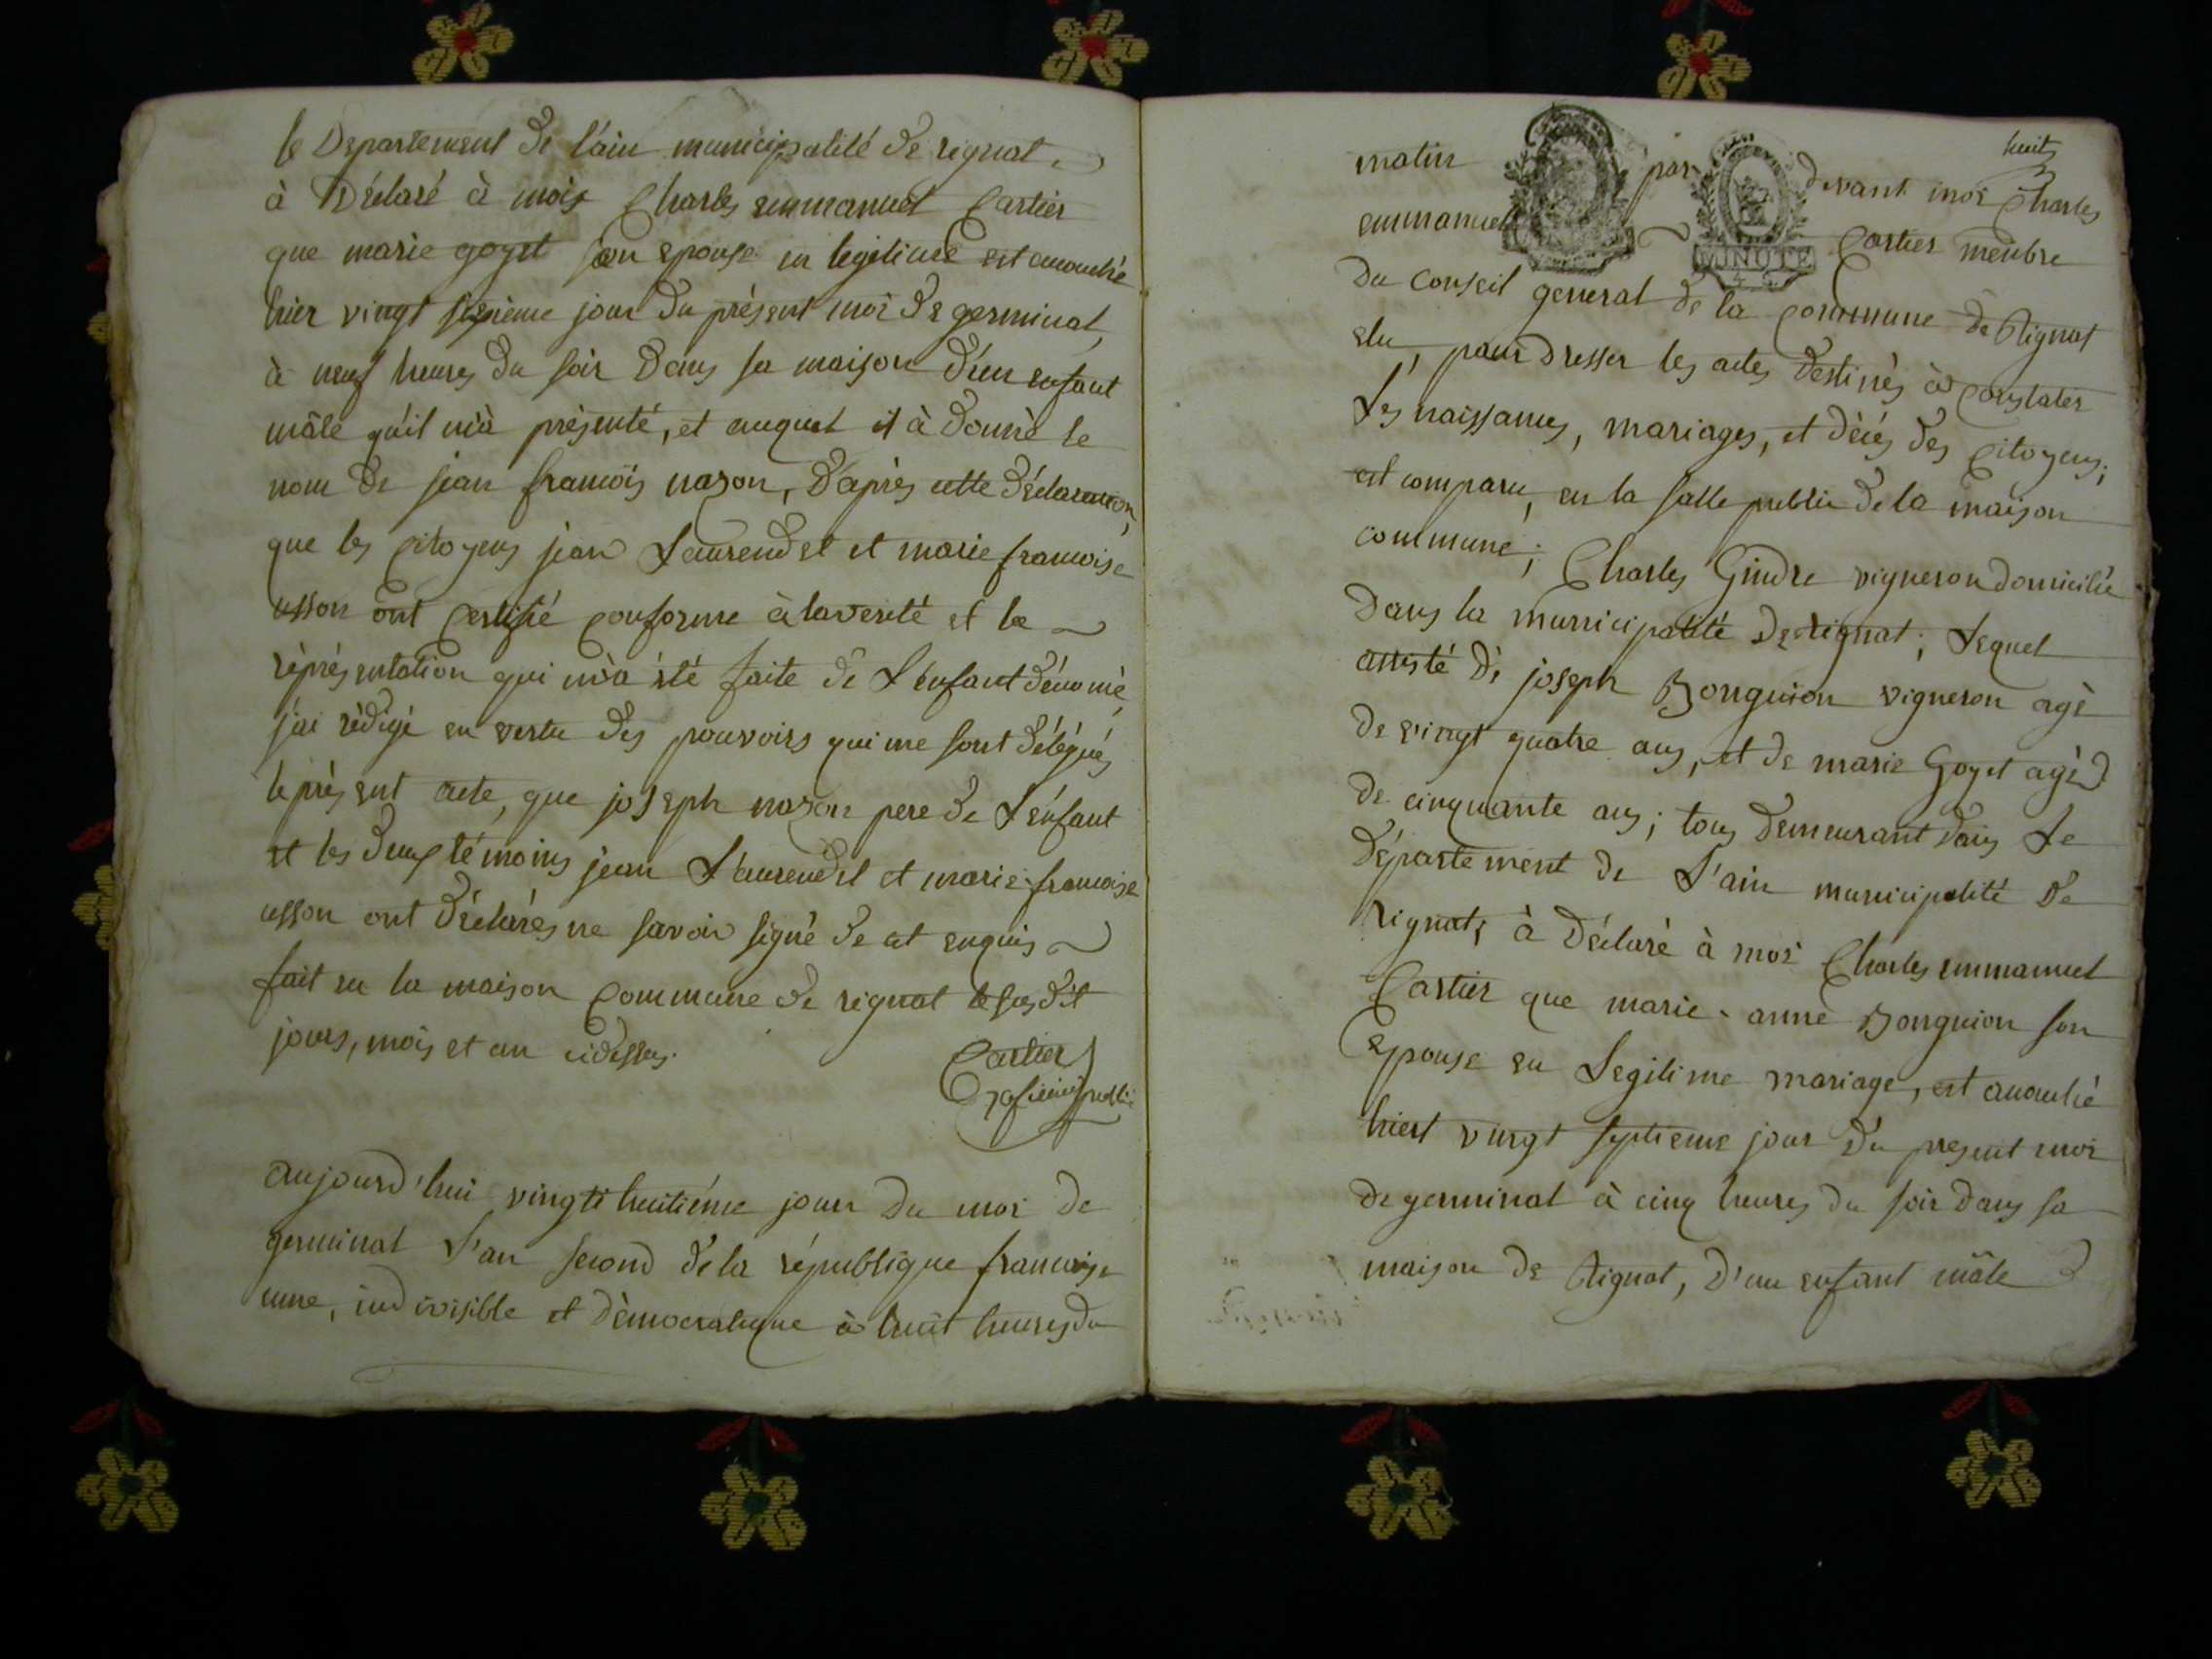 le Departement de l'ain municipalité de rignat
à Déclaré à mois Charles emmanuel Cartier
que marie goyet son epouse en legitime est accouchée
hier vingt sixieme jour du présent moi de germinal,
à neuf heures du soir Dans sa maison d'un enfant
mâle qu'il m'a présenté, et auquel il à donné le
nom de jean francois nazon, D'après cette déclaration,
que les citoyens jean Laurendel et marie francoise
usson ont certifié conforme à la verité et la
réprésentation qui m'a été faite de L'enfant dénomé,
j'ai rédigé en vertu des pouvoirs qui me sont délégués
le présent acte, que joseph nazon pere de L'enfant
et les deux témoins jean Laurendel et marie francoise
usson ont déclarés ne savoir signé de cet enquis
fait en la maison commune de rignat le susdit
jours, mois et an cidessus.
Cartier
oficier public
aujourd'hui vingt huitiéme jour du moi de
germinal L'an second de la république francoise
une, indivisible et démocratique à huit heures du
huit
matin par devant moi Charles
emmanuel Cartier membre
MINUTE
du conseil general de la commune de Rignat
elu, pour dresser les actes destinés à constater
Les naissances, mariages, et décés des citoyens;
est comparu, en la salle public de la maison
commune; Charles Gindre vigneron domicilié
Dans la municipalité de rignat; Lequel
assisté de joseph Bonguion vigneron agé
de vingt quatre ans, et de marie Goyet agé
de cinquante ans; tous demeurant dans Le
département de L'ain municipalité de
rignat; à Déclaré à moi Charles emmanuel
Cartier que marie-anne Bonguion son
Epouse en Legitime mariage, est accouché
hiert vingt septieme jour du present moi
de germinal à cinq heures du soir dans sa
maison de Rignat, D'un enfant mâle